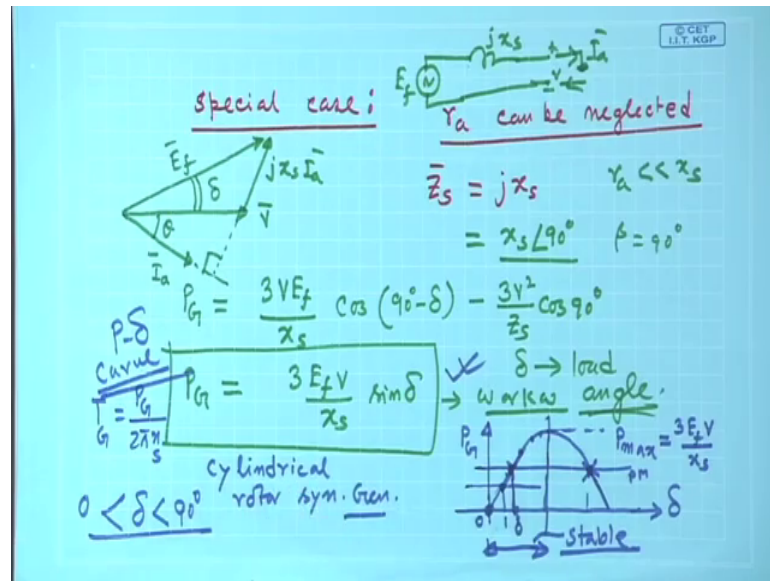 © CET
I.I.T. KGP
jxs
Īa
Ef
V
special case:
ra can be neglected
Ēf
δ
jxs Īa
V̄
θ
Īa
Z̄s = jxs ra << xs
= xs∠90° β = 90°
PG = 3VEf/xs cos (90°-δ) - 3V²/Zs cos 90°
P-δ
Curve
PG = 3EfV/xs sin δ
TG = PG/2πns
δ → load
angle.
cylindrical
rotor syn. Gen.
0 < δ < 90°
PG
Pmax = 3EfV/xs
PM
0
δ
δ
stable